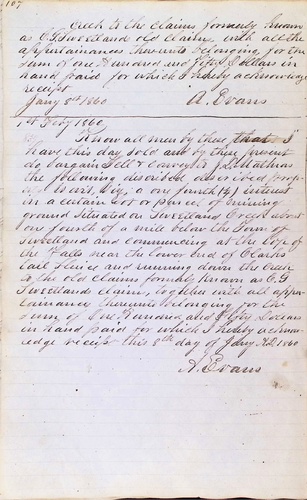 107
creek to the claims formerly known
as C G Sweetland old claim, with all the
appertainances thereunto belonging for the
sum of one Hundred and fifty Dollars in
hand paid for which I hereby acknowledge
receipt
Jany 8th 1860
A. Evans
1st Feby 1860
Know all men by these that I
have this day sold and by these present
do bargain Sell & convey to J L Mathias
the following described described prop
to wit, viz, a one fourth (¼) interest
in a certain lot or parcel of mining
ground situated on Sweetland Creek about
one fourth of a mile below the Town of
Sweetland and commencing at the top of
the Falls near the lower end of Clarks
tail sluice and running down the creek
to the old claims formaly known as C G
Sweetlands claim, together with all apper
tainances thereunto belonging for the
sum of One Hundred and fifty Dollars
in hand paid for which I hereby acknow
ledge receipt this 8th day of Jany AD 1860
A. Evans